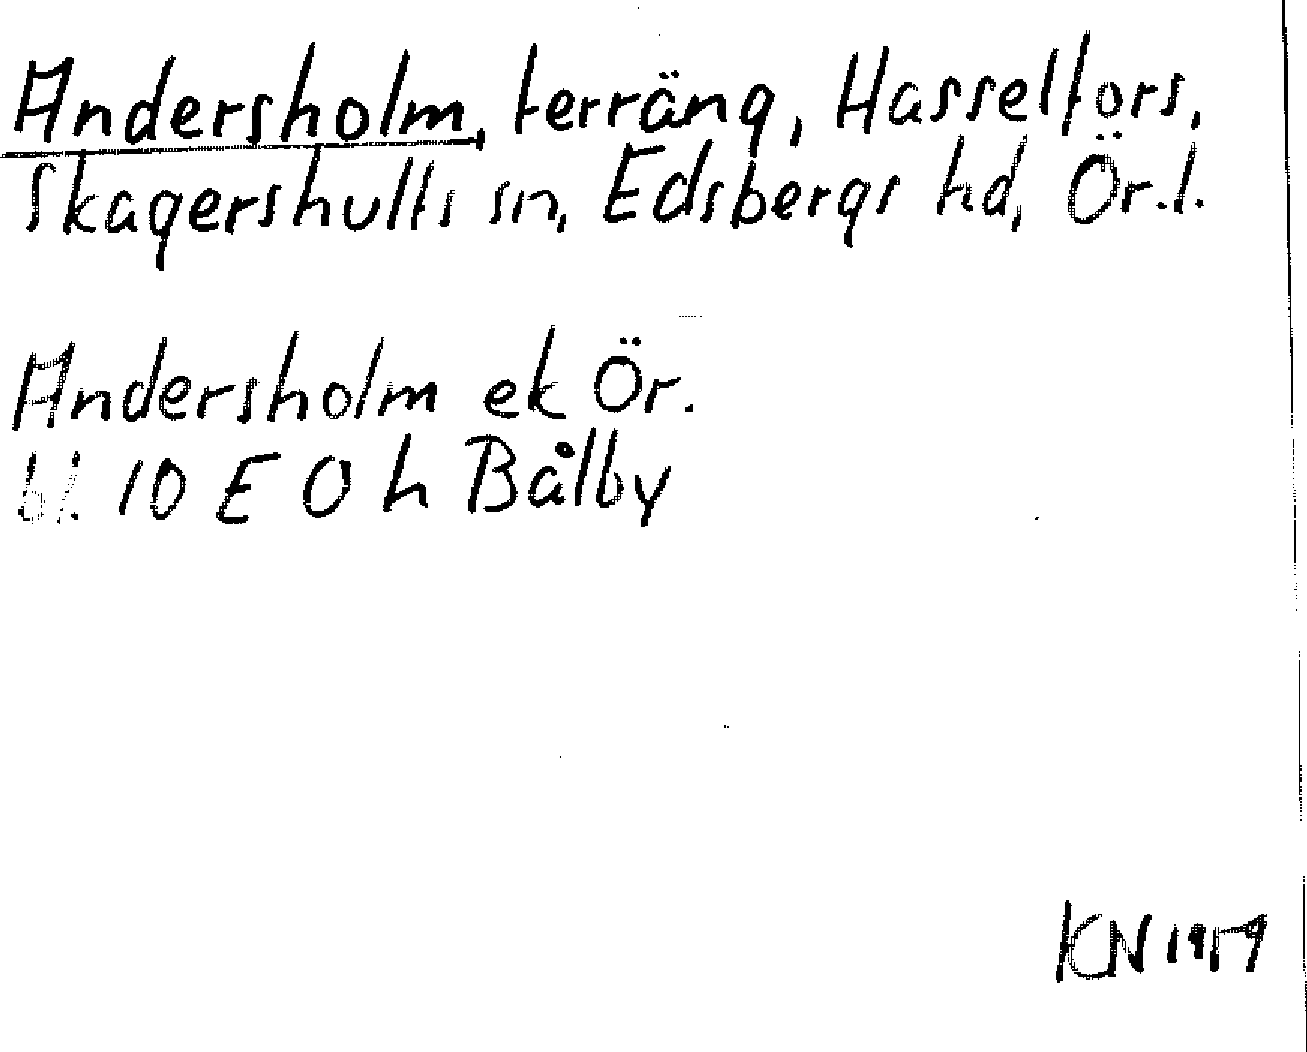 Andersholm, terräng, Hasselfors,
Skagershults sn, Edsbergs hd, Ör.l.
Andersholm ek Ör.
bl. 10 E 0 h Bålby
KN 1959